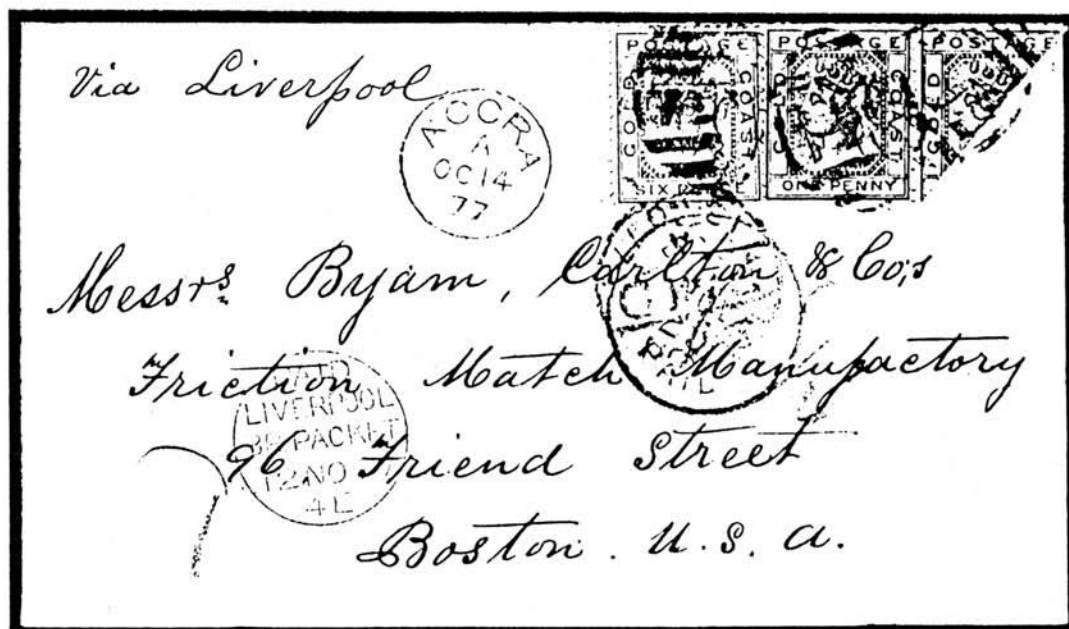 Via Liverpool
ACCRA
A
OC 14
77
POSTAGE
GOLD COAST
SIX PENCE
POSTAGE
GOLD COAST
ONE PENNY
POSTAGE
GOLD
Messrs Byam, Carlton & Co;s
Friction Match Manufactory
96 Friend Street
Boston. U.S.A.
LIVERPOOL
BR PACKET
12 NO
4L